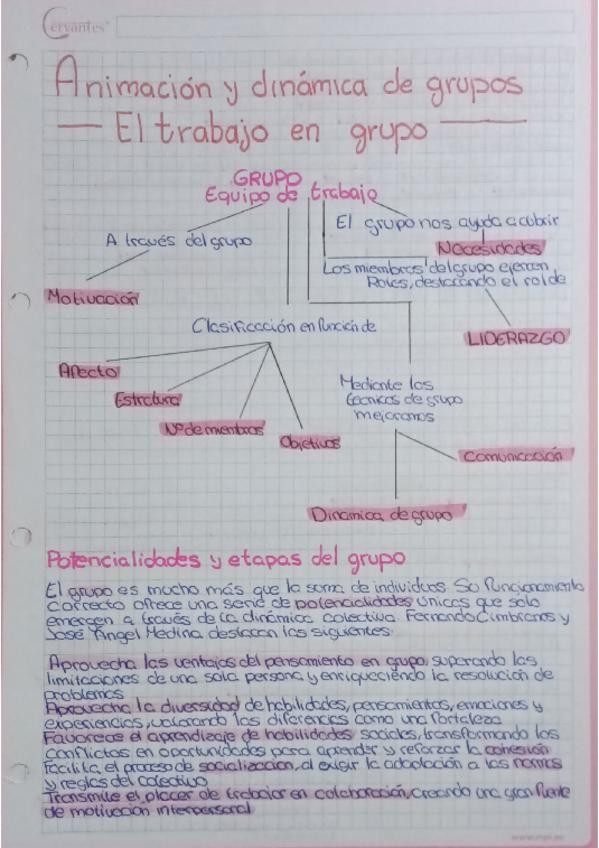 Cervantes
Animación y dinámica de grupos
— El trabajo en grupo —
GRUPO
Equipo de trabajo
El grupo nos ayuda a cubrir
A través del grupo
Necesidades
Los miembros del grupo ejercen
Roles, destacando el rol de
Motivación
Clasificación en función de
LIDERAZGO
Afecto
Mediante las
técnicas de grupo
mejoramos
Estructura
Nº de miembros
Objetivos
Comunicación
Dinamica de grupo
Potencialidades y etapas del grupo
El grupo es mucho más que la soma de individuos. So funcionamiento
correcto ofrece una serie de potencialidades únicas que solo
emergen a través de la dinámica colectiva. Fernando Cimbranos y
José Ángel Medina destacan las siguientes:
Aprovecha las ventajas del pensamiento en grupo, superando las
limitaciones de una sola persona y enriqueciendo la resolución de
problemas
Aprovecha la diversidad de habilidades, pensamientos, emociones y
experiencias, valorando las diferencias como una fortaleza
Favorece el aprendizaje de habilidades sociales, transformando los
conflictos en oportunidades para aprender y reforzar la cohesión
Facilita, el proceso de socialización, al exigir la adaptación a las normas
y reglas del colectivo
Transmite el placer de trabajar en colaboración, creando una gran fuente
de motivación interpersonal